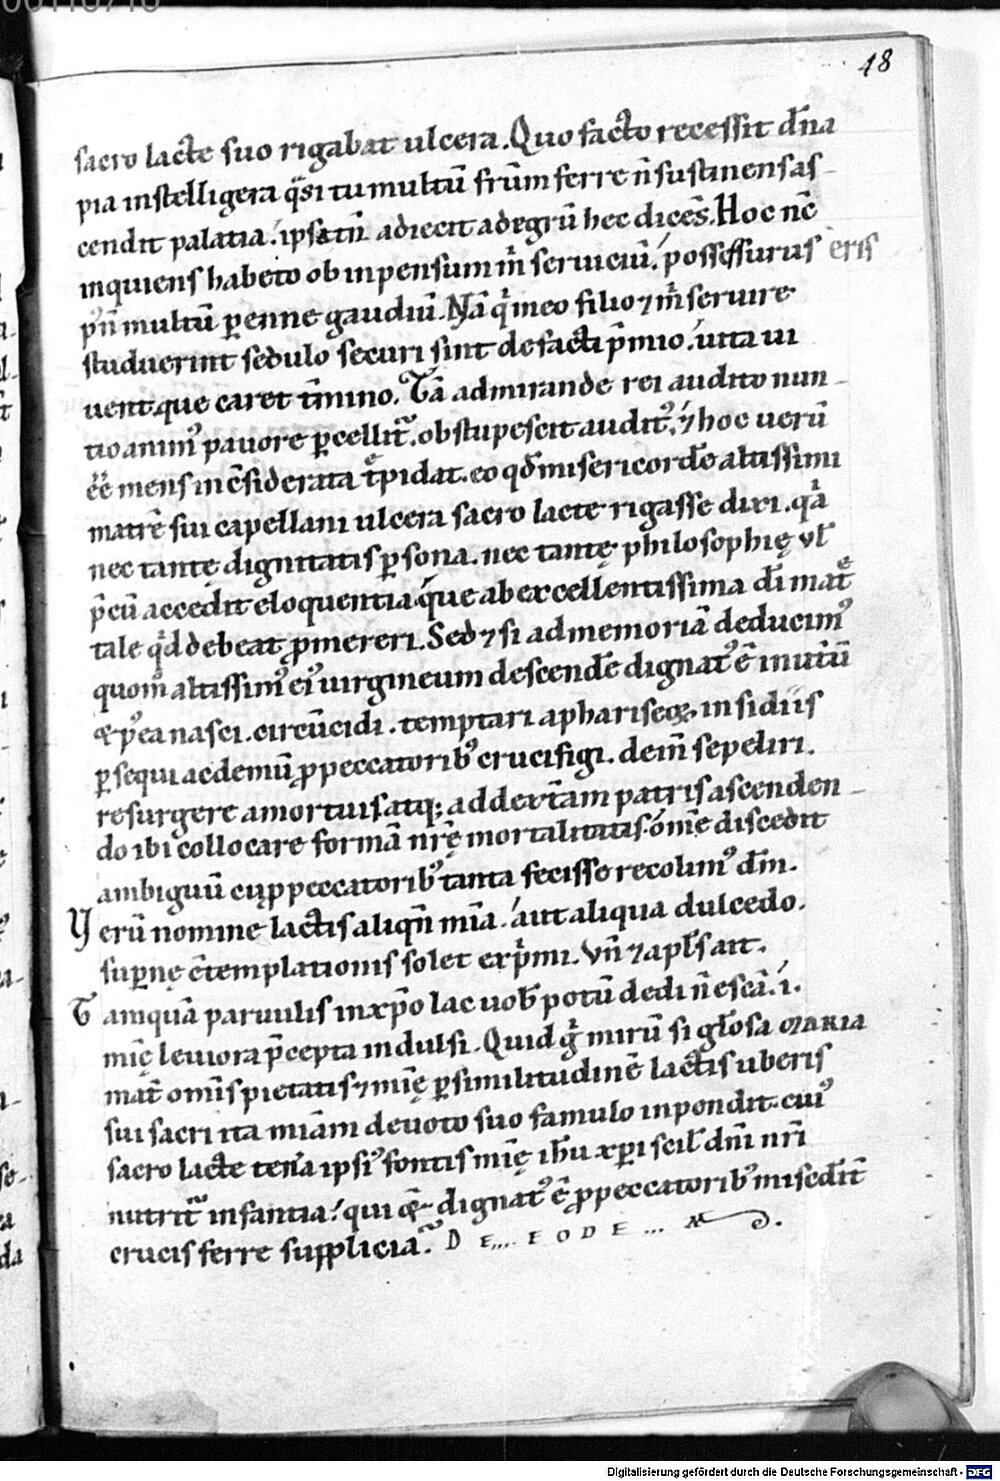 48
sacro lacte suo rigabat ulcera. Quo facto recessit dn̄a
pia instelligera q̄si tumultū frūm ferre n̄ sustinens as-
cendit palatia. ipsa tn̄ adiecit ad egrū hec dicēs. Hoc nc̄
inquiens habeto ob inpensum m̄ seruiciū. possessurus eris
p̄ multū ꝑenne gaudiū. Nā q̄ meo filio ⁊ m̄ seruire
studuerint sedulo securi sint de facti p̄mio. uita ui
uent que caret t̄mino. Tā admirande rei audito nun-
tio animꝰ pauore ꝑcellit᷑. obstupescit auditꝰ. ⁊ hoc uerū
ēē mens incc̄siderata t̄pidat. eo qd̄ misericordie altissimi
matrē sui capellani ulcera sacro lacte rigasse dixi. q̄a
nec tantę dignitatis ꝑsona. nec tantę philosophię ul̄
p̄cū accedit eloquentia que ab excellentissima dī mat̄
tale qd̄ debeat ꝓmereri. Sed ⁊ si ad memoriā deducimꝰ
quom̄ altissimꝰ eiꝰ uirgineum descendē dignatꝰ ē in ut̄ū
⁊ pꝰea nasci. circūcidi. temptari a phariseoꝝ. insidiis
ꝑsequi ac demū ꝓ peccatoribꝰ crucifigi. dem̄ sepeliri.
resurgere a mortuis atq; ad dext̄am patris ascenden-
do ibi collocare formā nr̄ę mortalitatis. om̄e discedit
ambiguū cū ꝓ peccatoribꝰ tanta fecisse recolimꝰ dn̄m.
Verū nomine lactis aliqn̄ mīa. aut aliqua dulcedo.
suꝑnę cc̄templationis solet exp̄mi. Vn̄ ⁊ apl̄s ait.
Tamquā paruulis in xp̄o lac uob̄ potū dedi n̄ escā. i.
mīę leuiora p̄cepta indulsi. Quid g̊ mirū si gl̄osa MARIA
mat̄ om̄is pietatis ⁊ mīę ꝑ similitudinē lactis uberis
sui sacri ita mīam deuoto suo famulo inpondit. cuiꝰ
sacro lacte ten̄a ipsiꝰ fontis mīę ihū xp̄i scil̄ dn̄i nr̄i
nutrit᷑ infantia. qui dignatꝰ ē ꝓ peccatoribꝰ misedīt
crucis ferre supplicia.